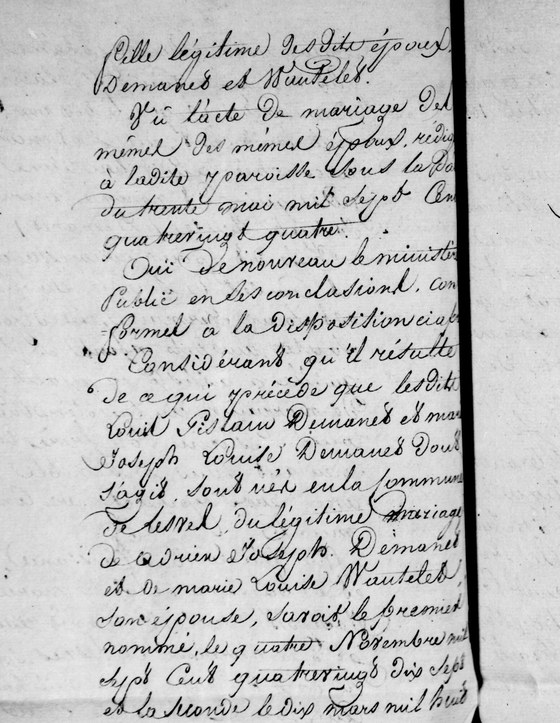 fille légitime des dits époux
Demanet et Wautelet.
Vu l'acte de mariage des
mêmes des mêmes époux, rédig
à ladite paroisse sous la Da
du trente mai mil sept Cen
quatrevingt quatre.
Oui de nouveau le ministèr
Public en ses conclusions, con
=formes à la disposition ciap
Considérant qu'il résulte
de ce qui précède que lesdits
Louis Gislain Demanet et mar
Joseph Louise Demanet dont
s'agit, sont nés en la Commune
de Lesves, du légitime mariage
de adrien Joseph Demanet
et de marie Louise Wautelet,
son épouse, savoir le premier
nommé, le quatre Novembre mil
sept Cent quatrevingt dix sept
et la seconde le dix mars mil huit